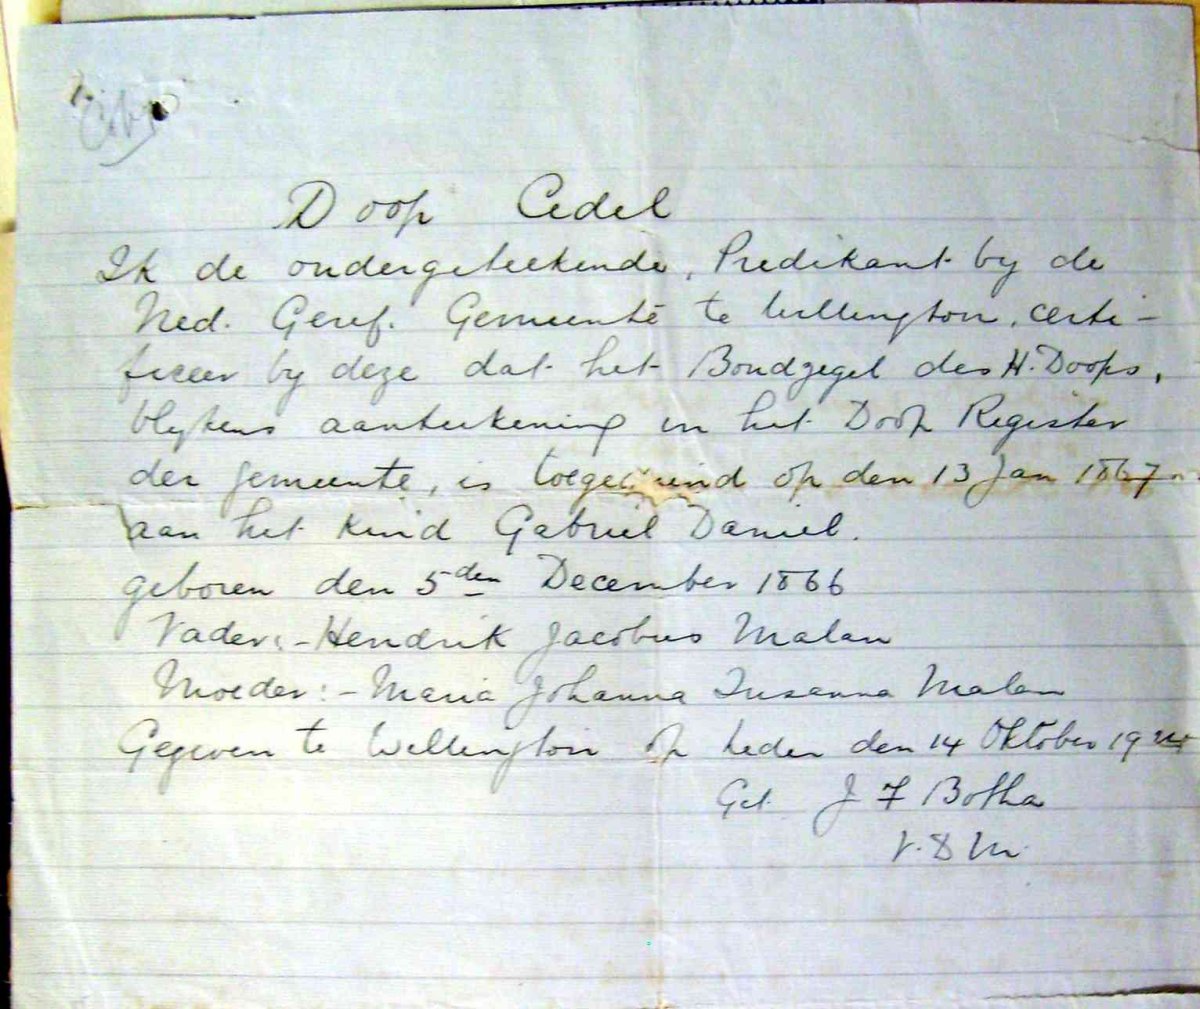 Doop Cedel
Ik de ondergeteekende, Predikant by de
Ned. Geref. Gemeente te Wellington, certi-
ficeer by deze dat het Bondzegel des H. Doops,
blykens aanteekening in het Doop Register
der gemeente, is toegediend op den 13 Jan 1867
aan het kind Gabriel Daniel.
geboren den 5den December 1866
Vader:- Hendrik Jacobus Malan
Moeder:- Maria Johanna Susanna Malan
Gegeven te Wellington op heden den 14 Oktober 19
Get. J F Botha
V.D.M.